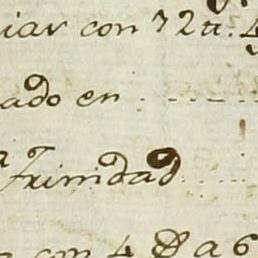 iar con 72
ado en
Trinidad
con 4 D a 6